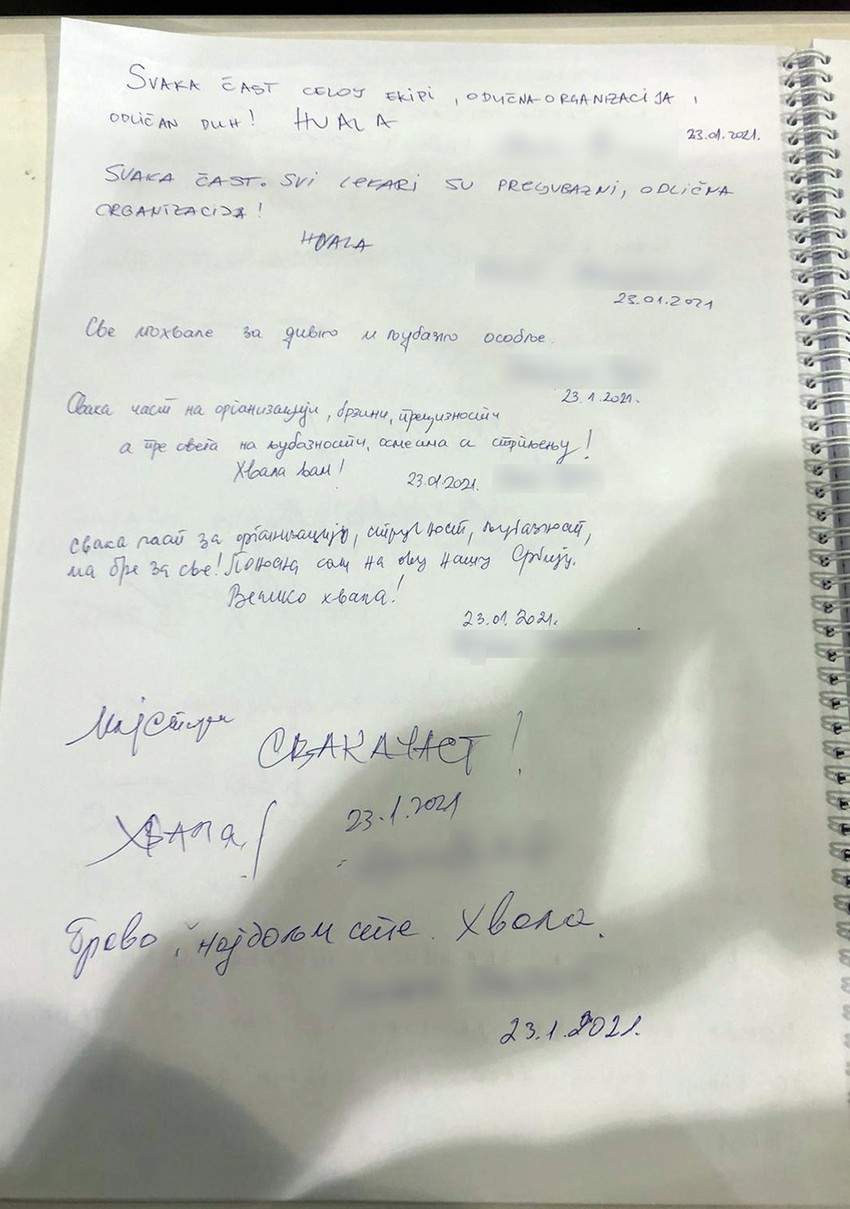 SVAKA ČAST CELOJ EKIPI, ODLIČNA ORGANIZACIJA,
ODLIČAN DUH! HVALA
23.01.2021.
SVAKA ČAST. SVI LEKARI SU PREljUBAZNI, ODLIČNA
ORGANIZACIJA!
HVALA
23.01.2021
Све похвале за дивно и љубазно особље.
23.1.2021.
Свака част на организацији, брзини, прецизности
а пре свега на љубазности, осмесима и стрпљењу!
Хвала вам!
23.01.2021.
Свака част за организацију, стручност, љубазност,
ма бре за све! Поносна сам на ову нашу Србију.
Велико хвала!
23.01.2021.
Мајстори
СВАКА ЧАСТ!
ХВАЛА!
23.1.2021
Браво, најбољи сте. Хвала.
23.1.2021.